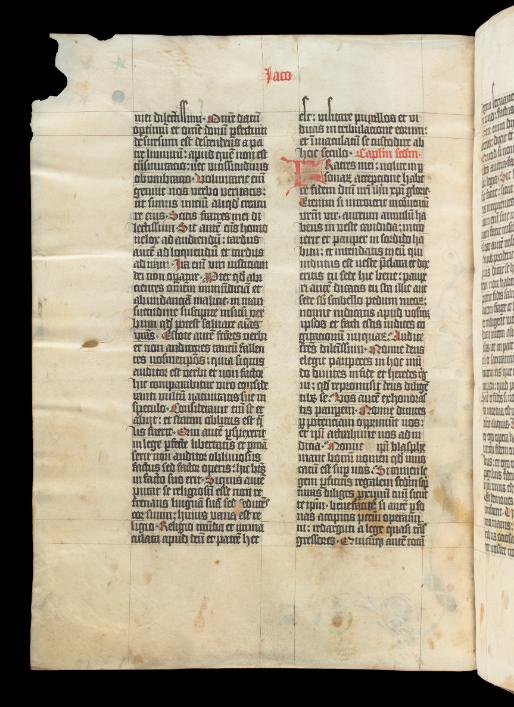 Jaco
mei dilectissimi. Omne datū
optimū et omne donū perfectum
desursum est descendens a pa
tre luminū: apud quē non est
obumbratio. Voluntarie enī
genuit nos verbo veritatis:
ut simus initiū aliqd creatu
re eius. Scitis fratres mei di
lectissimi. Sit autē oīs homo
velox ad audiendū: tardus
autē ad loquendū et tardus
ad irā. Ira enī viri iusticiam
dei non operatur.
habundanciā malicie: in man
suetudine suscipite insitū ver
bum qd potest saluare aīas
vrās. Estote autē factores verbi
et non auditores tantū fallen
tes vosmetipsos: quia si quis
auditor est verbi et non factor
hic comparabitur viro conside
ranti vultū natiuitatis sue in
speculo. Considerauit enī se et
abijt: et statim oblitus est q̄
lis fuerit. Qui autē perspexerit
in lege perfecte libertatis et pman
serit non auditor obliuiosus
factus sed factor operis: hic btūs
in facto suo erit. Si quis autē
putat se religiosū esse non re
frenans linguā suā sed seducēs
cor suum: huius vana est re
ligio. Religio mūda et inma
culata apud deū et patrē hec
est: visitare pupillos et vi
duas in tribulacione eorum:
et inmaculatū se custodire ab
hoc seculo. Caplm scdm.
Fratres mei: nolite in p
sonarū acceptione habe
re fidem dnī nrī ihū xpī glorie.
Etenim si introierit in conuentū
vestrū vir aureum anulū ha
bens in veste candida: intro
ierit et pauper in sordido ha
bitu: et intendatis in eū qui
indutus est veste preclara et dix
eritis tu sede hic bene: paupe
ri autē dicatis tu sta illic aut
sede sub scabello pedum meoꝝ:
nonne iudicatis apud vosm
ipsos et facti estis iudices co
gitacionū iniquaꝝ. Audite
fratres dilectissimi. Nonne deus
elegit pauperes in hoc mū
do diuites in fide et heredes re
gni: qd repromisit deus diligē
tibꝫ se. Vos autē exhonoras
tis pauperem. Nonne diuites
per potenciam opprimūt vos:
et ipī adtrahunt vos ad iu
dicia. Nonne ipī blasphe
mant bonū nomen qd inuo
catū est sup vos. Si tamen le
gem perficitis regalem scdm scrip
turas diliges proximū tuū sicut
te ipm: benefacitis: si autē pso
nas accipitis pctm operami
ni: redarguti a lege quasi trās
gressores. Quicūqꝫ autē totā